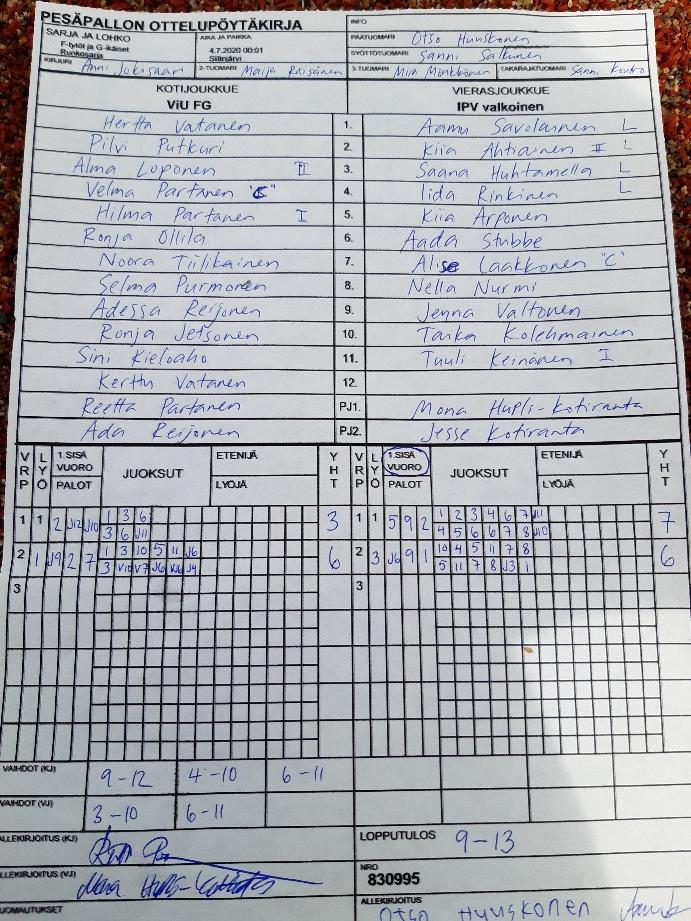 PESÄPALLON OTTELUPÖYTÄKIRJA
INFO
SARJA JA LOHKO
F-tytöt ja G-ikäiset
Runkosarja
AIKA JA PAIKKA
4.7.2020 00:01
Siilinjärvi
PÄÄTUOMARI Otso Huuskonen
SYÖTTÖTUOMARI Sanni
KIRJURI Anni Jokisaari
2-TUOMARI Maija Räisänen
3-TUOMARI Mira Mönkkönen
TAKARAJATUOMARI Sanni Kontro
KOTIJOUKKUE
ViU FG
VIERASJOUKKUE
IPV valkoinen
Hertta Vatanen 1. Aamu Savolainen L
Pilvi Putkuri 2. Kiia Ahtiainen II L
Alma Loponen II 3. Saana Huhtamella L
Velma Partanen "C" 4. Iida Rinkinen L
Hilma Partanen I 5. Kiia Arponen
Ronja Ollila 6. Aada Stubbe
Noora Tiilikainen 7. Alise Laakkonen "C"
Selma Purmonen 8. Nella Nurmi
Adessa Reijonen 9. Jenna Valtonen
Ronja Jetsonen 10. Taika Kolehmainen
Sini Kieloaho 11. Tuuli Keinänen I
Kerttu Vatanen 12.
Reetta Partanen PJ1. Mona Hupli-Kotiranta
Ada Reijonen PJ2. Jesse Kotiranta
VRP LYÖ 1.SISÄ VUORO PALOT JUOKSUT ETENIJÄ LYÖJÄ YHT VRP LYÖ 1.SISÄ VUORO PALOT JUOKSUT ETENIJÄ LYÖJÄ YHT
1 1 2 J12 J10 1 3 6 3 1 1 5 9 2 1 2 3 4 6 7 J11 7
3 6 J11 4 5 6 6 7 8 J10
2 1 J9 2 7 1 3 10 5 11 J6 6 2 3 J6 9 1 10 4 5 11 7 8 6
3 V10 V7 J6 J4 5 11 7 8 J3 1
3 3
VAIHDOT (KJ) 9-12 4-10 6-11
VAIHDOT (VJ) 3-10 6-11
ALLEKIRJOITUS (KJ)
LOPPUTULOS 9-13
ALLEKIRJOITUS (VJ) Mona Hupli-Kotiranta
NRO
830995
HUOMAUTUKSET
ALLEKIRJOITUS
Otso Huuskonen